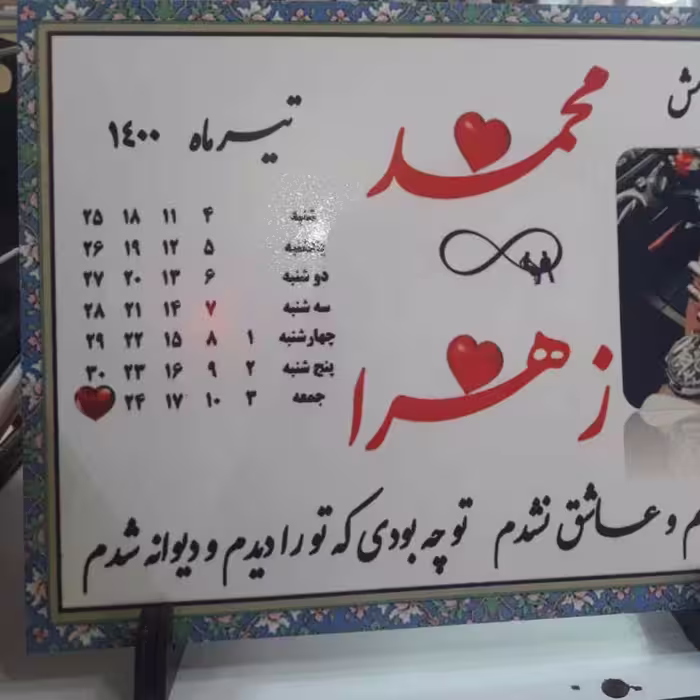 تیر ماه ۱۴۰۰
شنبه ۴ ۱۱ ۱۸ ۲۵
یکشنبه ۵ ۱۲ ۱۹ ۲۶
دو شنبه ۶ ۱۳ ۲۰ ۲۷
سه شنبه ۷ ۱۴ ۲۱ ۲۸
چهارشنبه ۱ ۸ ۱۵ ۲۲ ۲۹
پنج شنبه ۲ ۹ ۱۶ ۲۳ ۳۰
جمعه ۳ ۱۰ ۱۷ ۲۴
محمد
زهرا
و عاشق نشدم تو چه بودی که تو را دیدم و دیوانه شدم